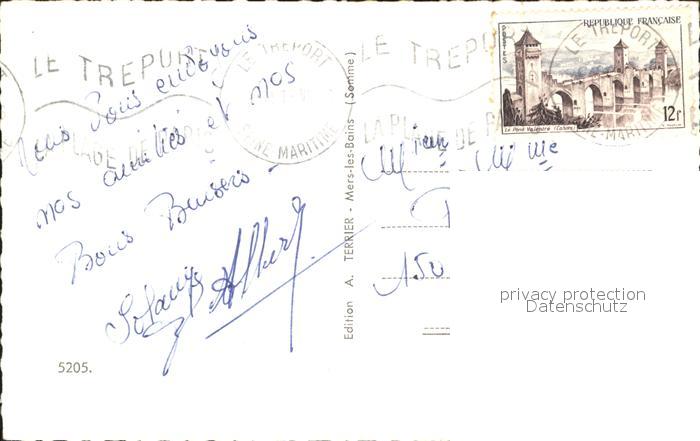 Nous Vous envoyons
nos amitiés et nos
Bons Baisers
Solange Albert
5205.
Edition A. TERRIER - Mers-les-Bains (Somme)
LE TREPORT
LA PLAGE DE PARIS
LE TREPORT
SEINE MARITIME
LE TREP
LA PLAGE DE PA
REPUBLIQUE FRANÇAISE
POSTES
Le Pont Valentré (Cahors)
12f
LE TREPORT
NE-MARIT
Mme
150
privacy protection
Datenschutz